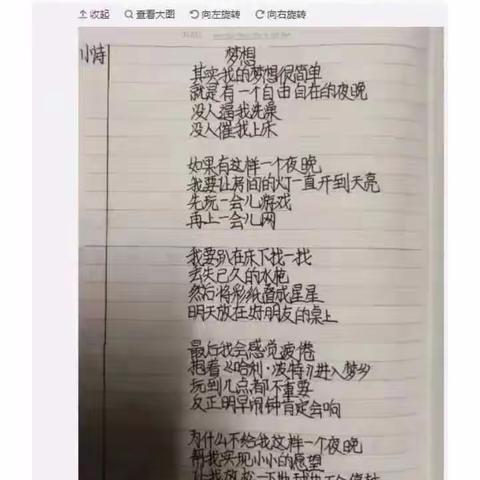 收起 查看大图 向左旋转 向右旋转
小诗
梦想
其实我的梦想很简单
就是有一个自由自在的夜晚
没人逼我洗澡
没人催我上床
如果有这样一个夜晚
我要让房间的灯一直开到天亮
先玩一会儿游戏
再上一会儿网
我要趴在床下找一找
丢失已久的水枪
然后将彩纸叠成星星
明天放在好朋友的桌上
最后我会感觉疲倦
抱着《哈利·波特》进入梦乡
玩到几点都不重要
反正明早闹钟肯定会响
为什么不给我这样一个夜晚
帮我实现小小的愿望